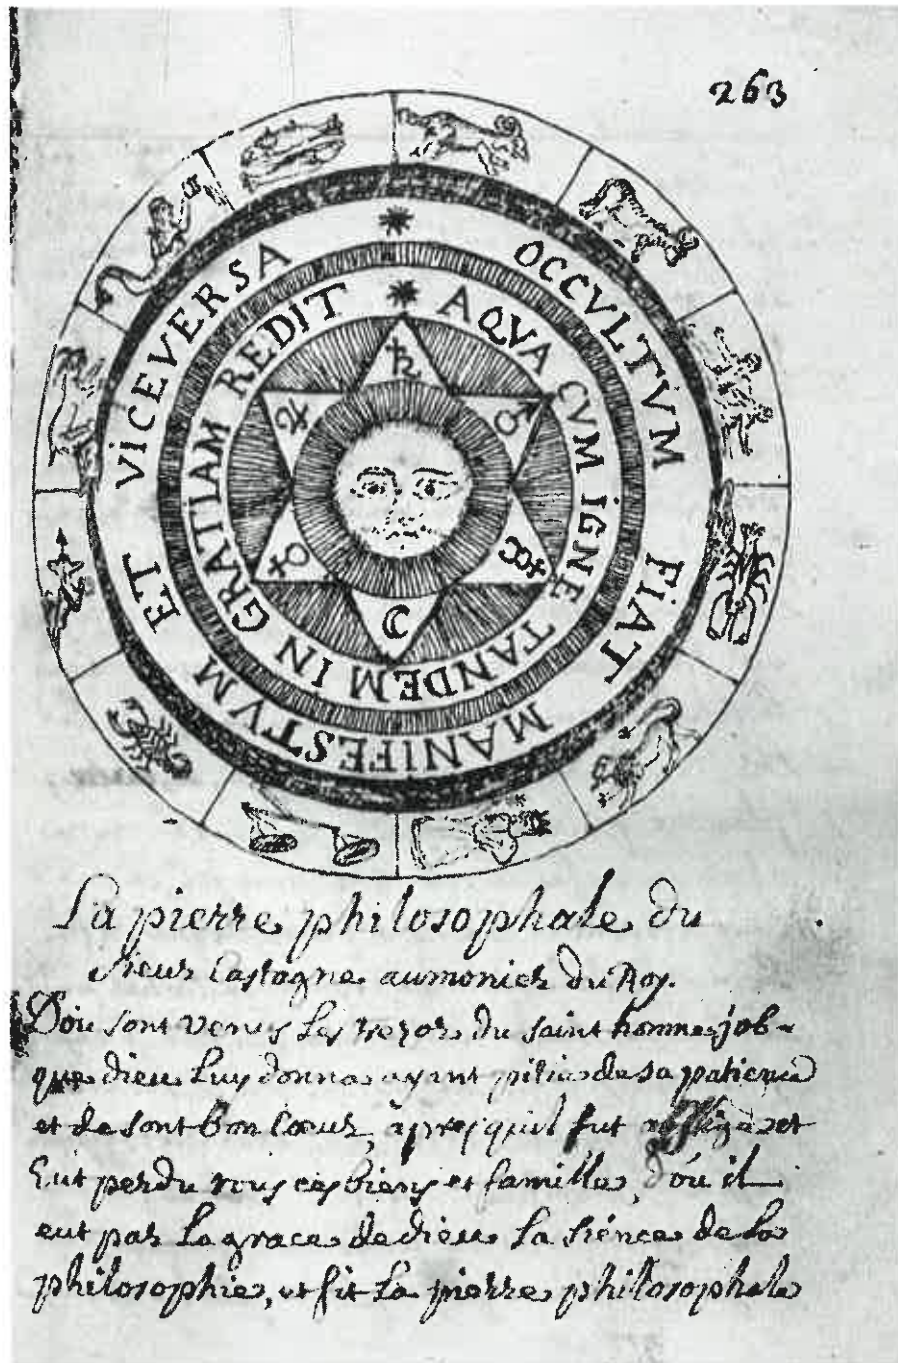 263
OCCVLTVM FiAT MANIFESTVM ET ViCEVERSA
AQVA CVM iGNE TANDEM IN GRATIAM REDIT
♄
♃
♂
♀
☿
☾
La pierre philosophale du
sieur Castagne aumonier du Roy.
Doú sont venus les trezors du saint homme job
que dieu luy donna ayant pitié de sa patience
et de sont bon Coeur, àprez quil fut affligé et
Eut perdu tous ces biens et famille, d'óu il
eut par la grace de dieu la siénce de la
philosophie, et fit la pierre philosophale